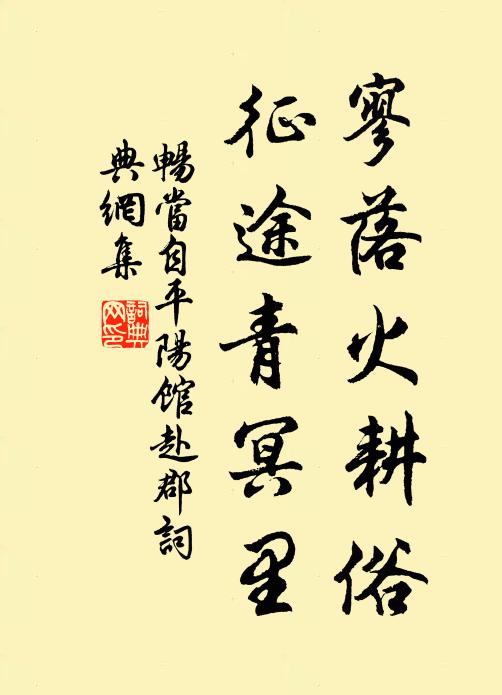 寥落火耕俗
征途青冥里
暢當自平陽館赴郡詞
典網集
詞典
网印